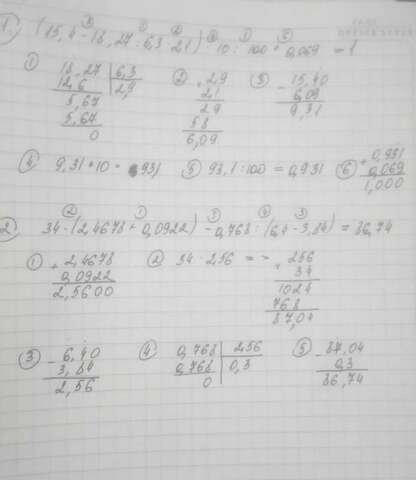 1. (15,4 - 18,27 : 6,3 · 2,1) · 10 : 100 + 0,069 = 1
① 18,27 | 6,3
12 6 | 2,9
5,67
5,67
0
② × 2,9
2,1
29
58
6,09
③ - 15,40
6,09
9,31
④ 9,31 · 10 = 93,1
⑤ 93,1 : 100 = 0,931
⑥ + 0,931
0,069
1,000
2. 34 · (2,4678 + 0,0922) - 0,768 : (6,4 - 3,84) = 86,74
① + 2,4678
0,0922
2,5600
② 34 · 2,56 =
× 256
34
1024
768
87,04
③ - 6,40
3,84
2,56
④ 0,768 | 2,56
0,768 | 0,3
0
⑤ - 87,04
0,3
86,74